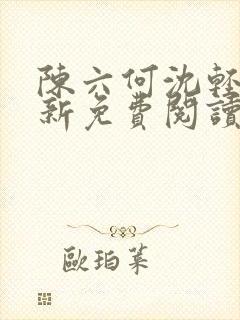 陳六何沈輕
新免費閱讀
歐珀萊